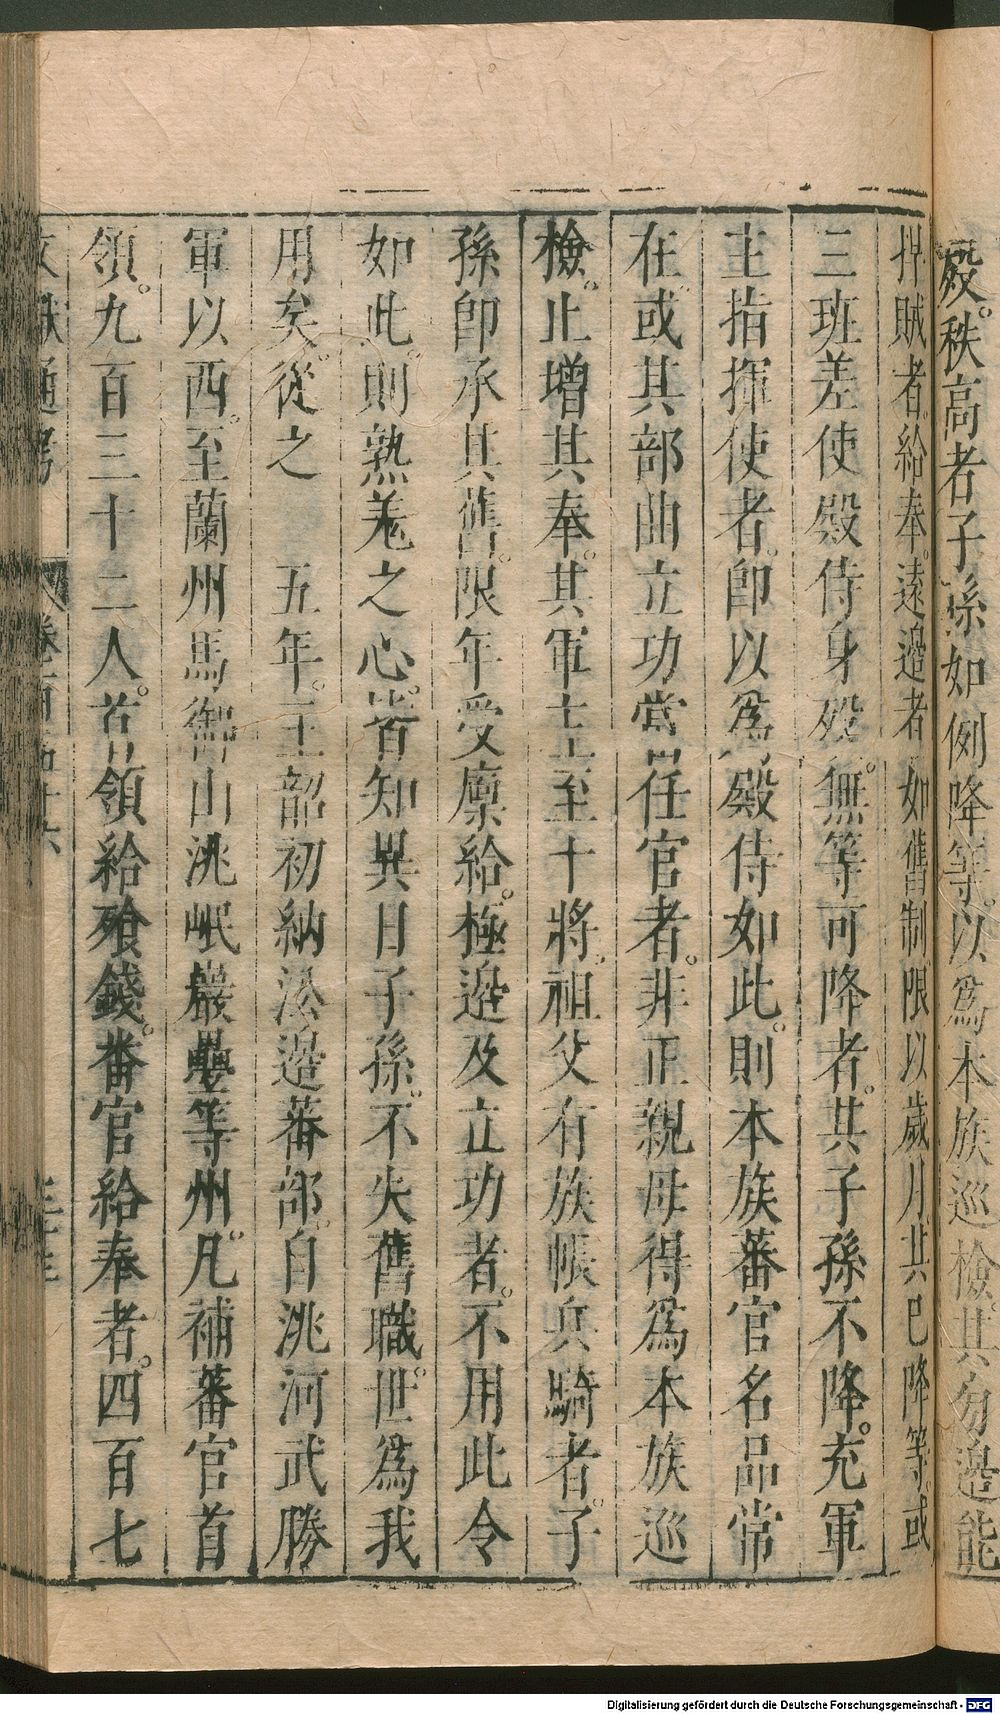 殿。秩高者子孫如例降等。以為本族巡檢。其旁邊能
捍賊者給奉。遠邊者如舊制限以歲月其已降等。或
三班差使殿侍身歿。無等可降者。其子孫不降。充軍
主指揮使者。即以爲殿侍如此。則本族蕃官名品常
在。或其部曲立功當任官者。非正親母得爲本族巡
檢。止增其奉。其軍主至十將。祖父有族帳兵騎者。子
孫即承其舊。限年受廪給。極邊及立功者。不用此令
如此。則熟羌之心。皆知異日子孫。不失舊職。世爲我
用矣。從之　五年。王韶初納沿邊蕃部。自洮河武勝
軍以西。至蘭州馬衘山洮岷巖疊等州。凡補蕃官首
領。九百三十二人。首領給飱錢。蕃官給奉者。四百七
文獻通考 卷百五十六
Digitalisierung gefördert durch die Deutsche Forschungsgemeinschaft - DFG